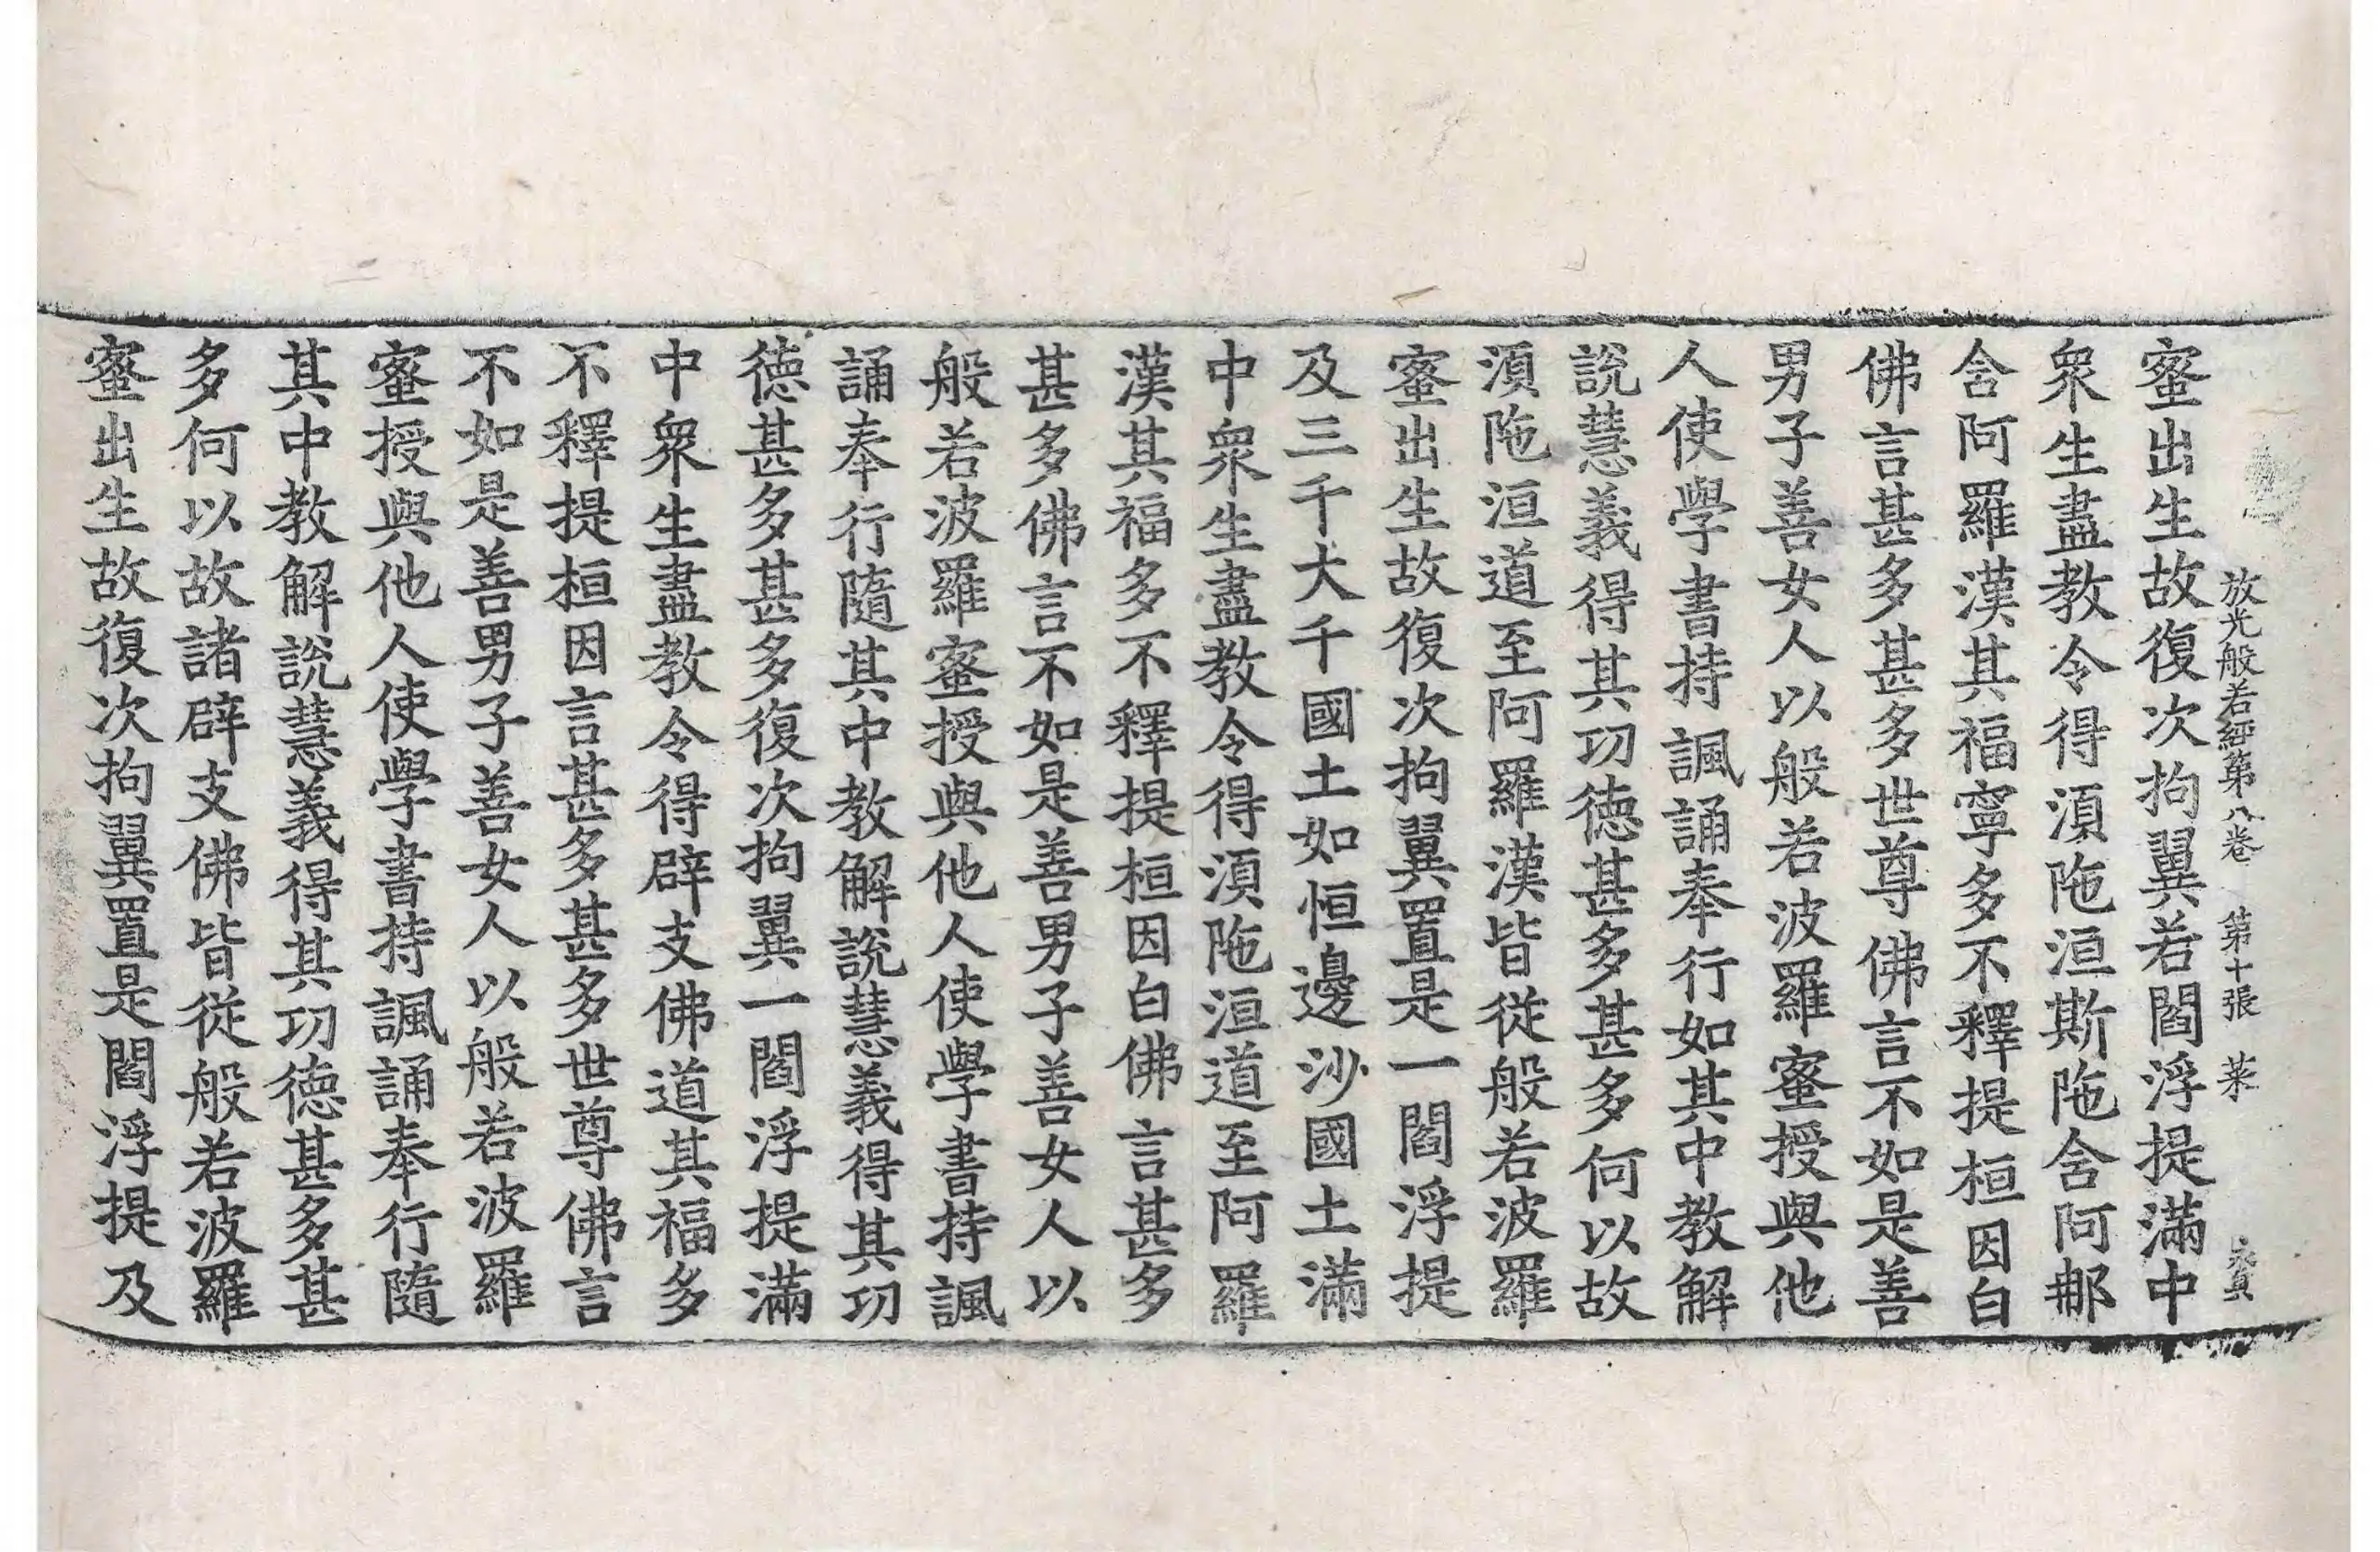 放光般若經第八卷 第十張 菜
蜜出生故復次拘翼若閻浮提滿中
衆生盡教令得湏陁洹斯陁含阿那
含阿羅漢其福寧多不釋提桓因白
佛言甚多甚多世尊佛言不如是善
男子善女人以般若波羅蜜授與他
人使學書持諷誦奉行如其中教解
說慧義得其功德甚多甚多何以故
湏陁洹道至阿羅漢皆從般若波羅
蜜出生故復次拘翼置是一閻浮提
及三千大千國土如恒邊沙國土滿
中衆生盡教令得湏陁洹道至阿羅
漢其福多不釋提桓因白佛言甚多
甚多佛言不如是善男子善女人以
般若波羅蜜授與他人使學書持諷
誦奉行隨其中教解說慧義得其功
德甚多甚多復次拘翼一閻浮提滿
中衆生盡教令得辟支佛道其福多
不釋提桓因言甚多甚多世尊佛言
不如是善男子善女人以般若波羅
蜜授與他人使學書持諷誦奉行隨
其中教解說慧義得其功德甚多甚
多何以故諸辟支佛皆從般若波羅
蜜出生故復次拘翼置是閻浮提及